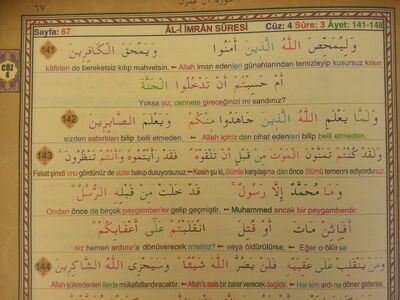 Sayfa: 67 ÂL-İ İMRÂN SÛRESİ Cüz: 4 Sûre: 3 Âyet: 141-148
CÜZ 4
141 وَلِيُمَحِّصَ اللّٰهُ الَّذِينَ اٰمَنُوا وَيَمْحَقَ الْكَافِرِينَ
kâfirleri de bereketsiz kılıp mahvetsin. Allah iman edenleri günahlarından temizleyip kusursuz kılsın
اَمْ حَسِبْتُمْ اَنْ تَدْخُلُوا الْجَنَّةَ
Yoksa siz, cennete gireceğinizi mi sandınız?
142 وَلَمَّا يَعْلَمِ اللّٰهُ الَّذِينَ جَاهَدُوا مِنْكُمْ وَيَعْلَمَ الصَّابِرِينَ
sizden sabırlıları bilip belli etmeden, Allah içinizden cihat edenleri bilip belli etmeden,
143 وَلَقَدْ كُنْتُمْ تَمَنَّوْنَ الْمَوْتَ مِنْ قَبْلِ اَنْ تَلْقَوْهُ فَقَدْ رَاَيْتُمُوهُ وَاَنْتُمْ تَنْظُرُونَ
Fakat şimdi onu gördünüz de sizler bakıp duruyorsunuz. Kesin şu ki, ölümle karşılaşmadan önce de ölümü temenni ediyordunuz.
وَمَا مُحَمَّدٌ اِلَّا رَسُولٌ قَدْ خَلَتْ مِنْ قَبْلِهِ الرُّسُلُ
Ondan önce de birçok peygamberler gelip geçmiştir. Muhammed ancak bir peygamberdir.
اَفَاِئِنْ مَاتَ اَوْ قُتِلَ انْقَلَبْتُمْ عَلٰى اَعْقَابِكُمْ
siz hemen ardınız'a dönüverecek misiniz? veya öldürülürse, Eğer o ölürse
144 وَمَنْ يَنْقَلِبْ عَلٰى عَقِبَيْهِ فَلَنْ يَضُرَّ اللّٰهَ شَيْـًٔا وَسَيَجْزِى اللّٰهُ الشَّاكِرِينَ
Allah şükredenleri ilerde mükafatlandıracaktır. Allah'a asla bir zarar verecek değildir. Her kim ardına döner giderse,